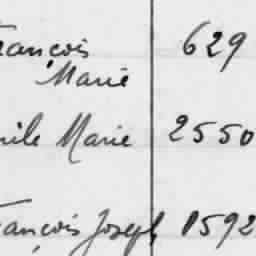 rançois 629
Marie
mile Marie 2550
rançois Joseph 1592